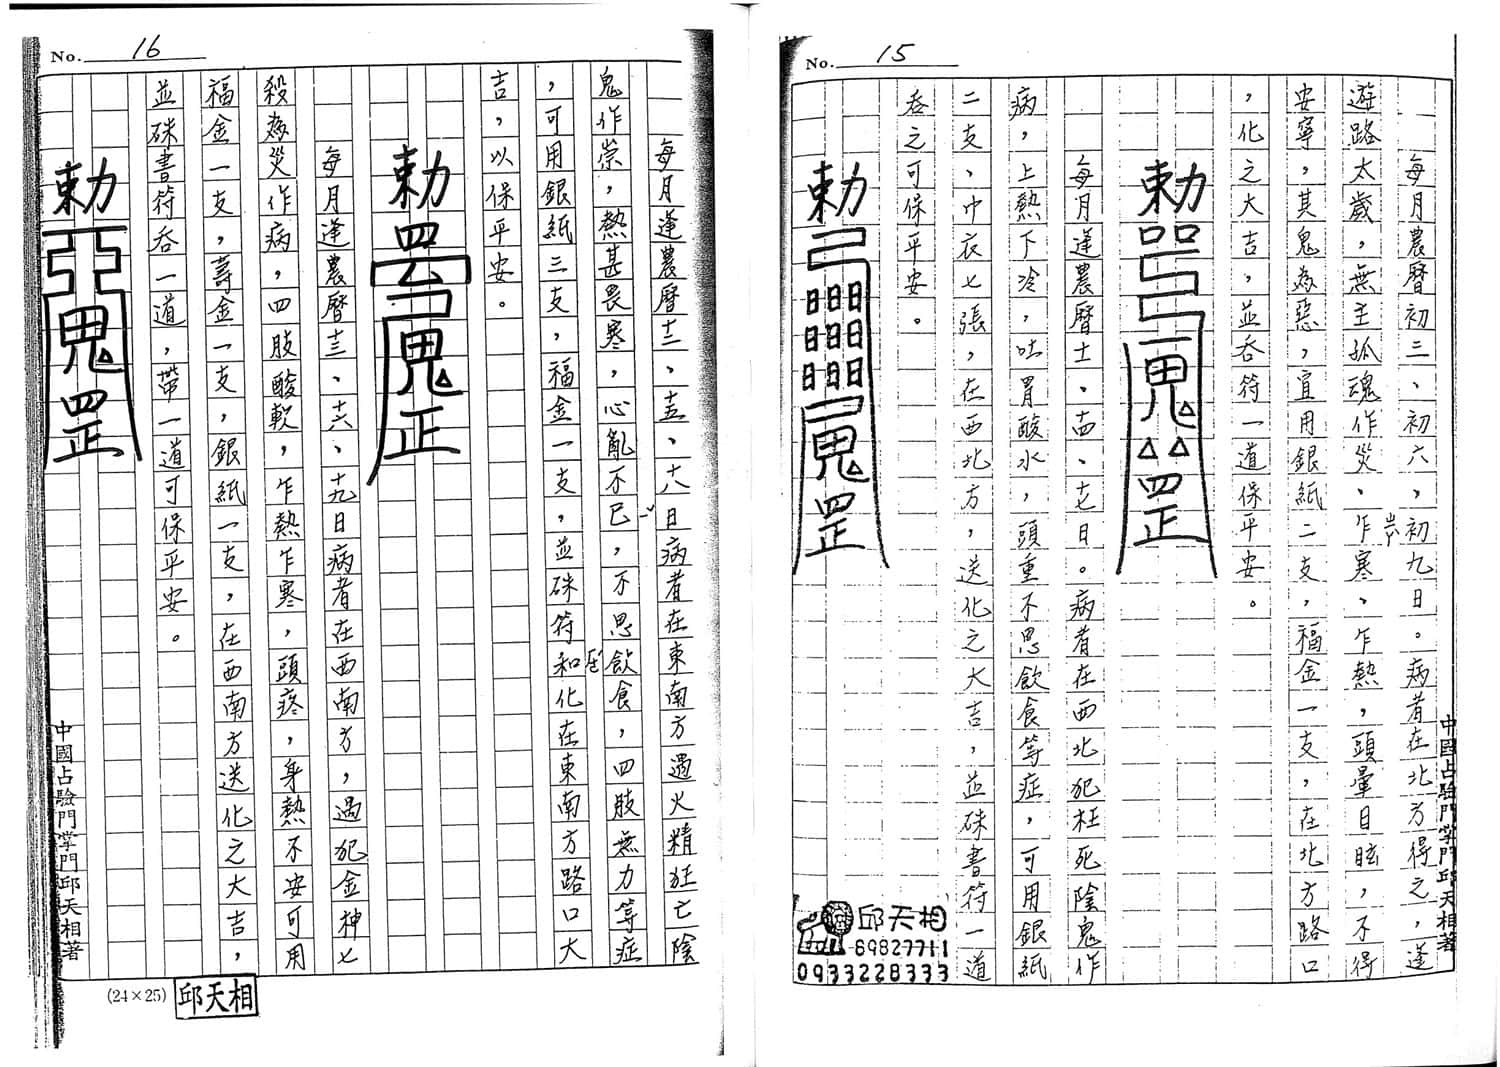 No. 15
每月農曆初三、初六，初九日。病者在北方得之，逢
遊路太歲，無主孤魂作災、乍寒、乍熱，頭暈目眩，不得
安寧，其鬼為惡，宜用銀紙二支，福金一支，在北方路口
，化之大吉，並吞符一道保平安。
勅
鬼
罡
每月逢農曆十一、十四、十七日。病者在西北犯枉死陰鬼作
病，上熱下冷，吐胃酸水，頭重不思飲食等症，可用銀紙
二支、巾衣七張，在西北方，送化之大吉，並硃書符一道
吞之可保平安。
勅
日日日
日日日
日日日
鬼
罡
中國占驗門掌門邱天相著
邱天相
69827711
0933228333
No. 16
每月逢農曆十二、十五、十八日病者在東南方遇火精狂亡陰
鬼作祟，熱甚畏寒，心亂不已，不思飲食，四肢無力等症
，可用銀紙三支，福金一支，並硃符和化在東南方路口大
吉，以保平安。
勅
鬼
正
每月逢農曆十三、十六、十九日病者在西南方，過犯金神七
殺為災作病，四肢酸軟，乍熱乍寒，頭疼，身熱不安可用
福金一支，壽金一支，銀紙一支，在西南方送化之大吉，
並硃書符吞一道，帶一道可保平安。
勅
鬼
罡
中國占驗門掌門邱天相著
(24×25)
邱天相